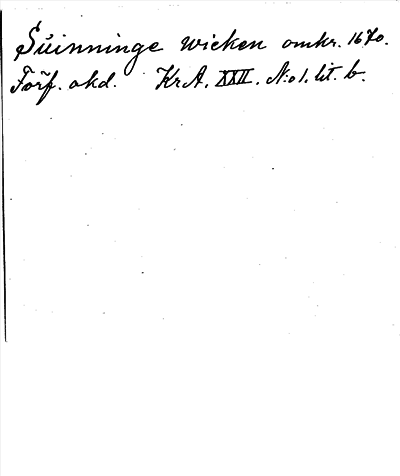 Suinninge wicken omkr. 1670.
Förf. okd. Kr A. XXII. N:o 1. lit. b.